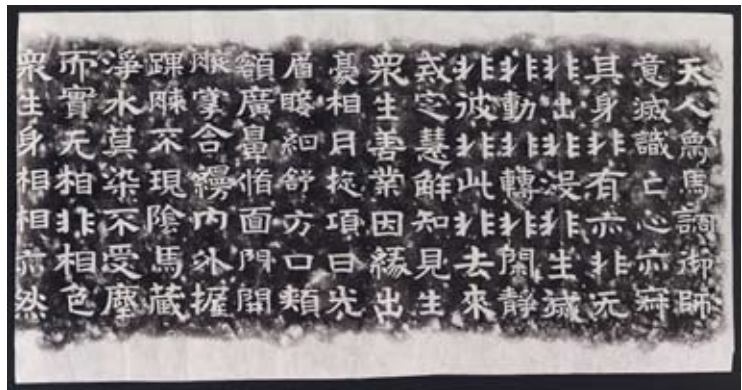 天人象馬調御師
意滅識亡心亦寂
其身非有亦非无
非出非沒非生滅
非動非轉非閑靜
非彼非此非去來
戒定慧解知見生
衆生善業因緣出
豪相月旋項日光
眉睫紺舒方口頰
額廣鼻脩面門開
腋掌合縵內外握
踝膝不現陰馬藏
淨水莫染不受塵
而實无相非相色
衆生身相相亦然